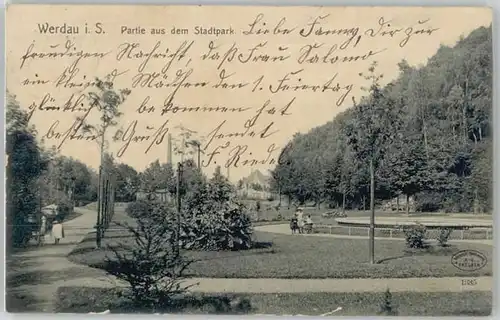 Werdau i. S. Partie aus dem Stadtpark
Liebe Fanny, Dir zur
freudigen Nachricht, daß Frau Salomo
ein kleines Mädchen den 1. Feiertag
glücklich bekommen hat
besten Gruß sendet
F. Riedel